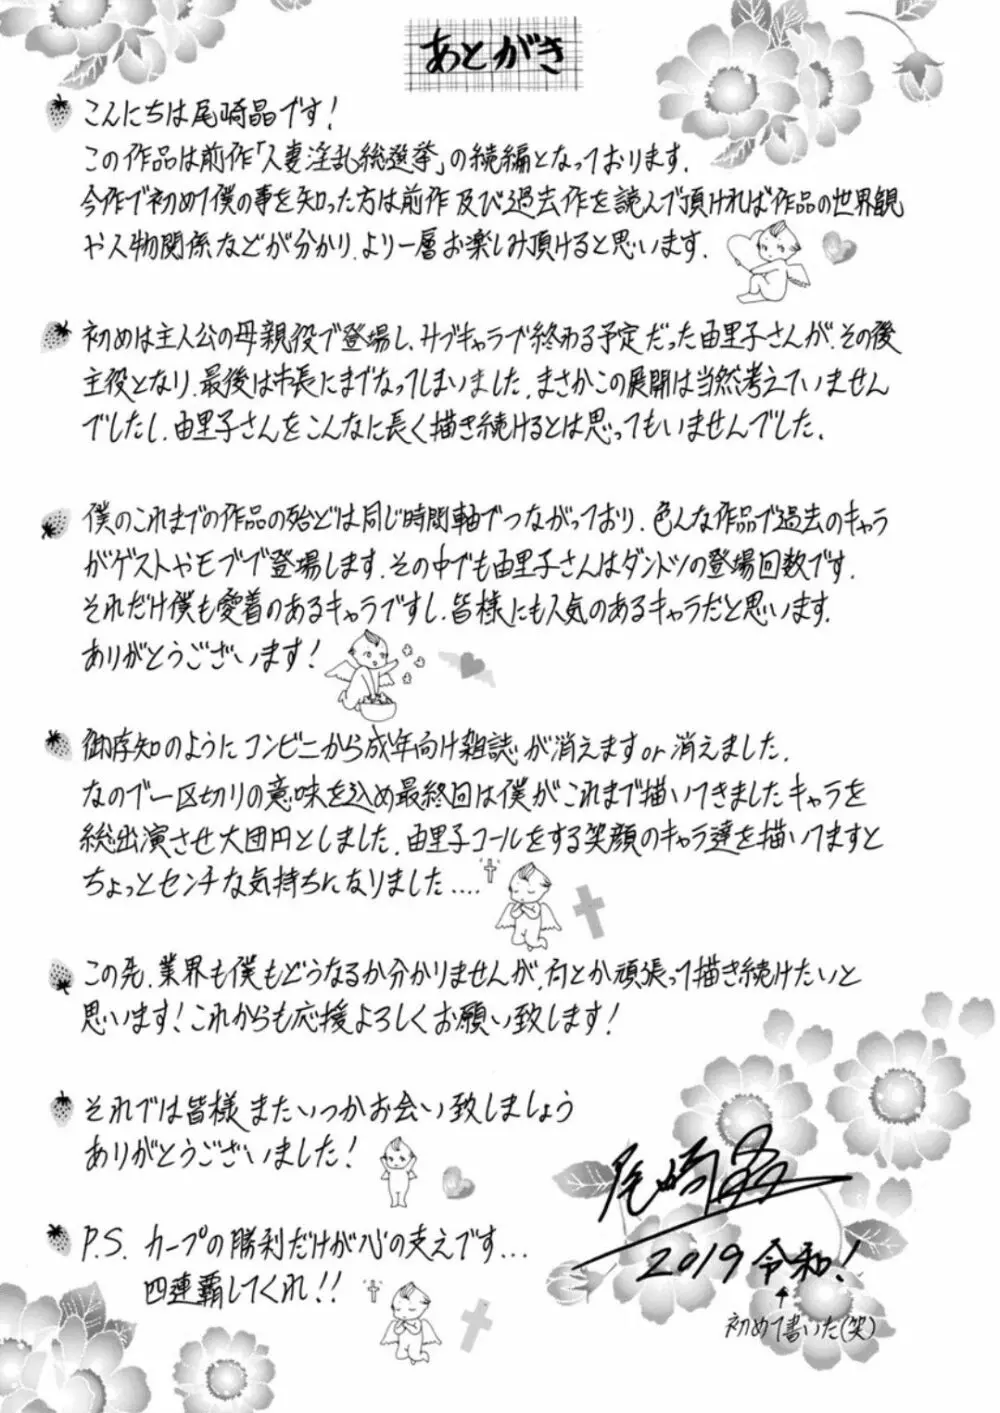 あとがき
こんにちは尾崎晶です!
この作品は前作「人妻淫乱総選挙」の続編となっております.
今作で初めて僕の事を知った方は前作及び過去作を読んで頂ければ作品の世界観
や人物関係などが分かり.より一層お楽しみ頂けると思います.
初めは主人公の母親役で登場し、サブキャラで終わる予定だった由里子さんが.その後
主役となり.最後は市長にまでなってしまいました.まさかこの展開は当然考えていません
でしたし.由里子さんをこんなに長く描き続けるとは思ってもいませんでした.
僕のこれまでの作品の殆どは同じ時間軸でつながっており.色んな作品で過去のキャラ
がゲストやモブで登場します.その中でも由里子さんはダントツの登場回数です.
それだけ僕も愛着のあるキャラですし.皆様にも人気のあるキャラだと思います.
ありがとうございます!
御存知のようにコンビニから成年向け雑誌が消えますor消えました.
なので一区切りの意味を込め最終回は僕がこれまで描いてきましたキャラを
総出演させ大団円としました.由里子コールをする笑顔のキャラ達を描いてますと
ちょっとセンチな気持ちになりました....
この先.業界も僕もどうなるか分かりませんが.何とか頑張って描き続けたいと
思います!これからも応援よろしくお願い致します!
それでは皆様またいつかお会い致しましょう
ありがとうございました!
P.S. カープの勝利だけが心の支えです...
四連覇してくれ!!
尾崎晶
2019令和!
初めて書いた(笑)